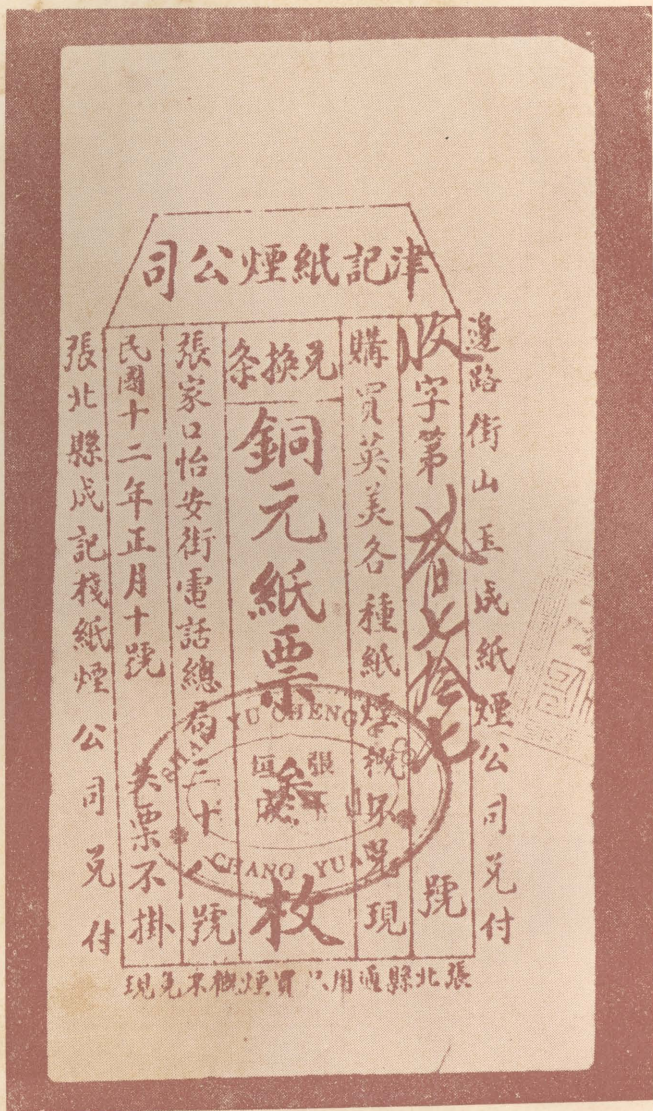 津記紙煙公司
邊路街山玉成紙煙公司兌付
收字第 柒拾七 號
購買英美各種紙煙概不兌現
兌換条
銅元紙票叁枚
張家口怡安街電話總局三十八號
民國十二年正月十號 失票不掛
張北縣成記棧紙煙公司兌付
張北縣通用只買煙概不兌現
SHAN YU CHENG & CO
張垣
CHANG YUAN